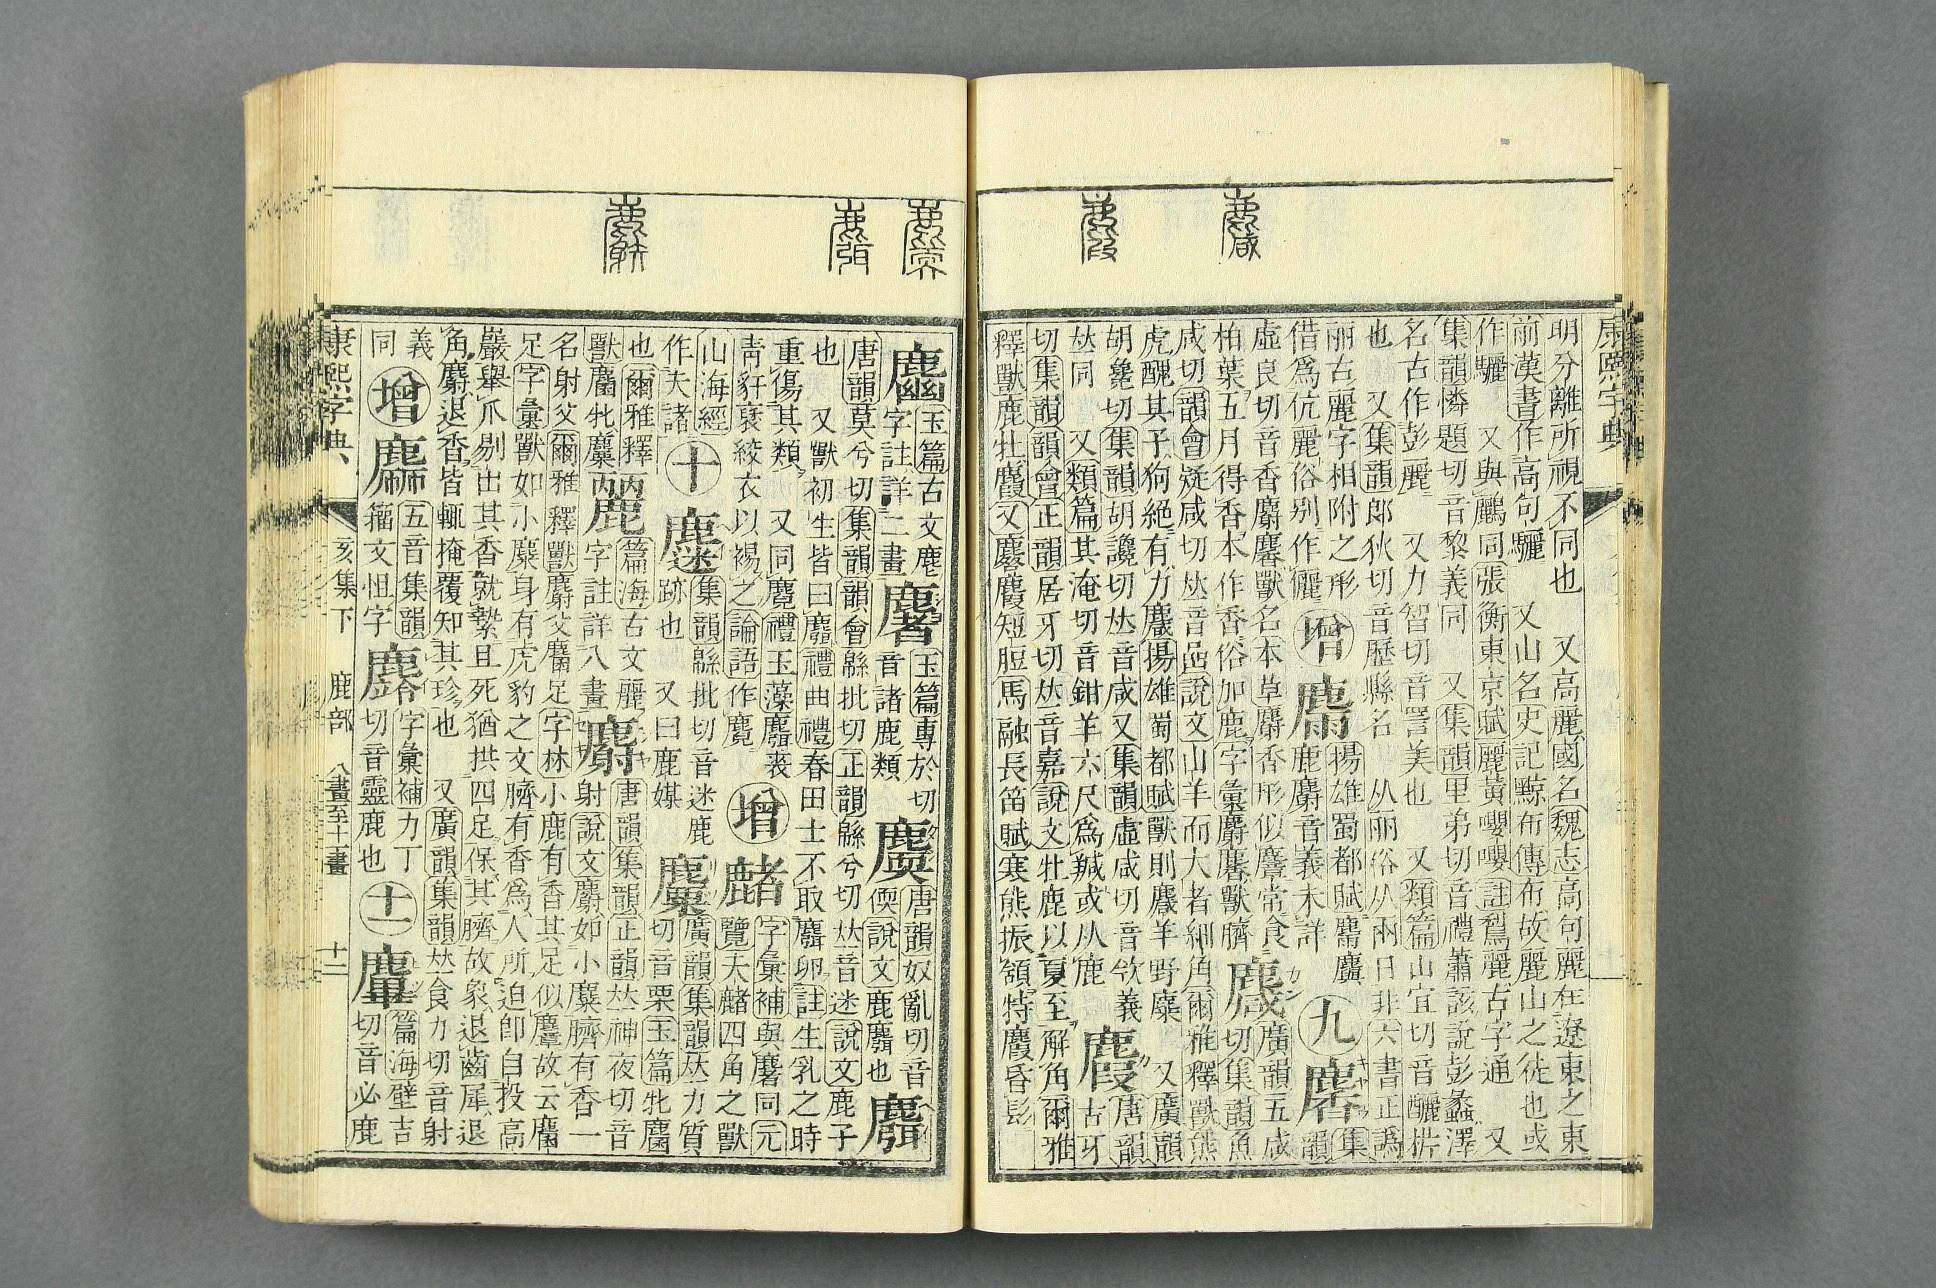 康熙字典
明分離所視不同也 又高麗國名魏志高句麗在遼東之東
前漢書作高句驪 又山名史記黥布傳布故麗山之徒也或
作驪 又與鸝同張衡東京賦麗黃嚶嚶註鴷麗古字通 又
集韻憐題切音黎義同 又集韻里弟切音禮蕭該說彭蠡澤
名古作彭麗 又力智切音詈美也 又類篇山宜切音釃㭊
也 又集韻郎狄切音歷縣名 从丽俗从兩日非六書正譌
丽古麗字相附之形
借為伉麗俗別作儷
增
揚雄蜀都賦
鹿麝音義未詳
九
麘
集韻
虛良切音香麝麘獸名本草麝香形似麞常食
柏葉五月得香本作香俗加鹿字彙麝麘獸臍
麙
廣韻五咸
切集韻魚
咸切韻會疑咸切𠀤音嵒說文山羊而大者細角爾雅釋獸熊
虎醜其子狗絕有力麙揚雄蜀都賦獸則麙羊野麋 又廣韻
胡毚切集韻胡讒切𠀤音咸又集韻虛咸切音欦義
𠀤同 又類篇其淹切音鉗羊六尺為羬或从鹿
麚
唐韻古牙
切集韻韻會正韻居牙切𠀤音嘉說文牡鹿以夏至解角爾雅
釋獸鹿牡麚又麔麚短脰馬融長笛賦寒熊振頷特麚昏髟
玉篇古文麀
字註詳二畫
玉篇專於切
音諸鹿類
麌
唐韻奴亂切音
偄說文鹿麛也
麛
唐韻莫兮切集韻韻會緜批切正韻緜兮切𠀤音迷說文鹿子
也 又獸初生皆曰麛禮曲禮春田士不取麛卵註生乳之時
重傷其類 又同麑禮玉藻麛裘
青豻褎絞衣以裼之論語作麑
增
字彙補與䴴同元
覽夫䴴四角之獸
山海經
作夫諸
十
麊
集韻緜批切音迷鹿
跡也 又曰鹿媒
廣韻集韻𠀤力質
切音栗玉篇牝麕
也爾雅釋
獸麕牝麜
篇海古文麗
字註詳八畫
麝
唐韻集韻正韻𠀤神夜切音
射說文麝如小麋臍有香一
名射父爾雅釋獸麝父麕足字林小鹿有香其足似麞故云麕
足字彙獸如小麋身有虎豹之文臍有香為人所迫卽自投高
巖舉爪剔出其香就縶且死猶拱四足保其臍故象退齒犀退
角麝退香皆輒掩覆知其珍也 又廣韻集韻𠀤食力切音射
義
同
增
五音集韻
籀文怚字
麢
字彙補力丁
切音靈鹿也
十一
篇海壁吉
切音必鹿
康熙字典
亥集下 鹿部 八畫至十一畫
十二